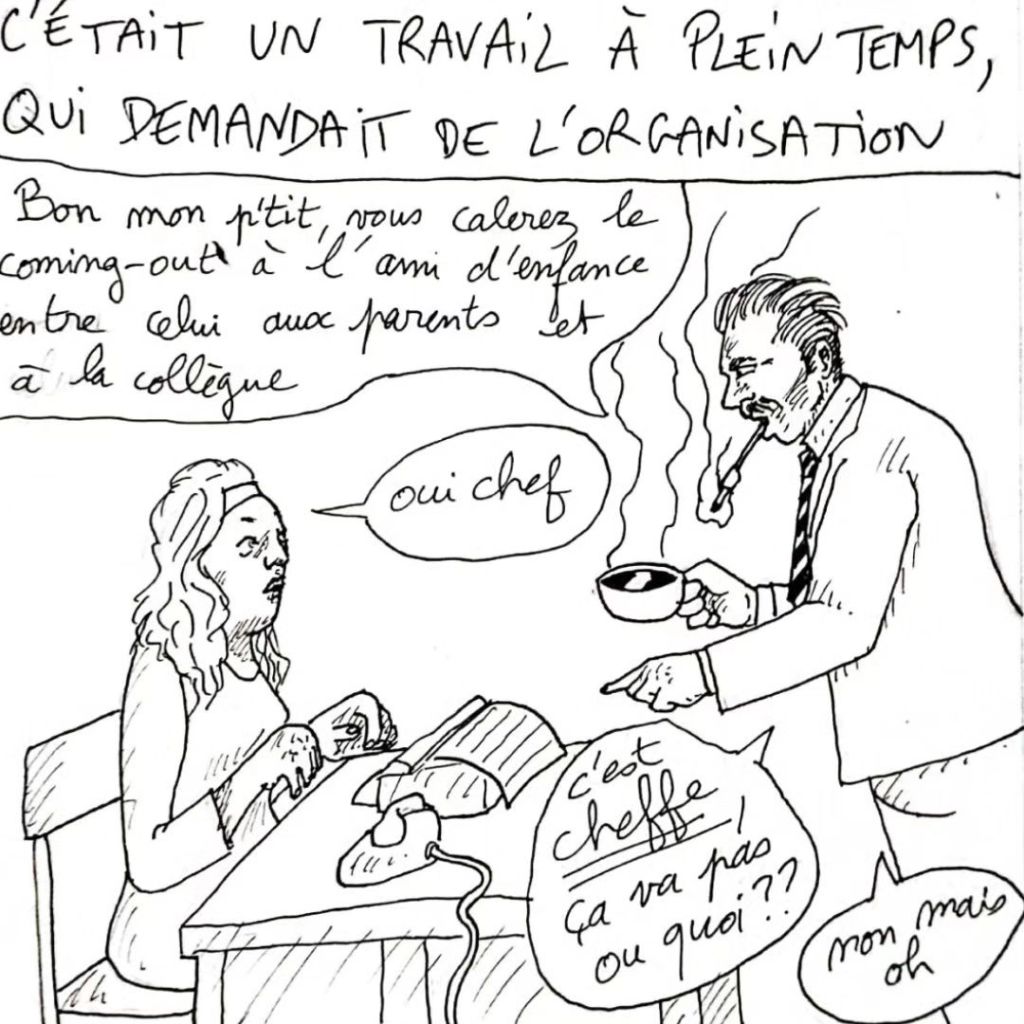 C'ÉTAIT UN TRAVAIL À PLEIN TEMPS,
QUI DEMANDAIT DE L'ORGANISATION
Bon mon p'tit, vous calerez le
coming-out à l'ami d'enfance
entre celui aux parents et
à la collègue
oui chef
c'est
cheffe!
ça va pas
ou quoi??
non mais
oh